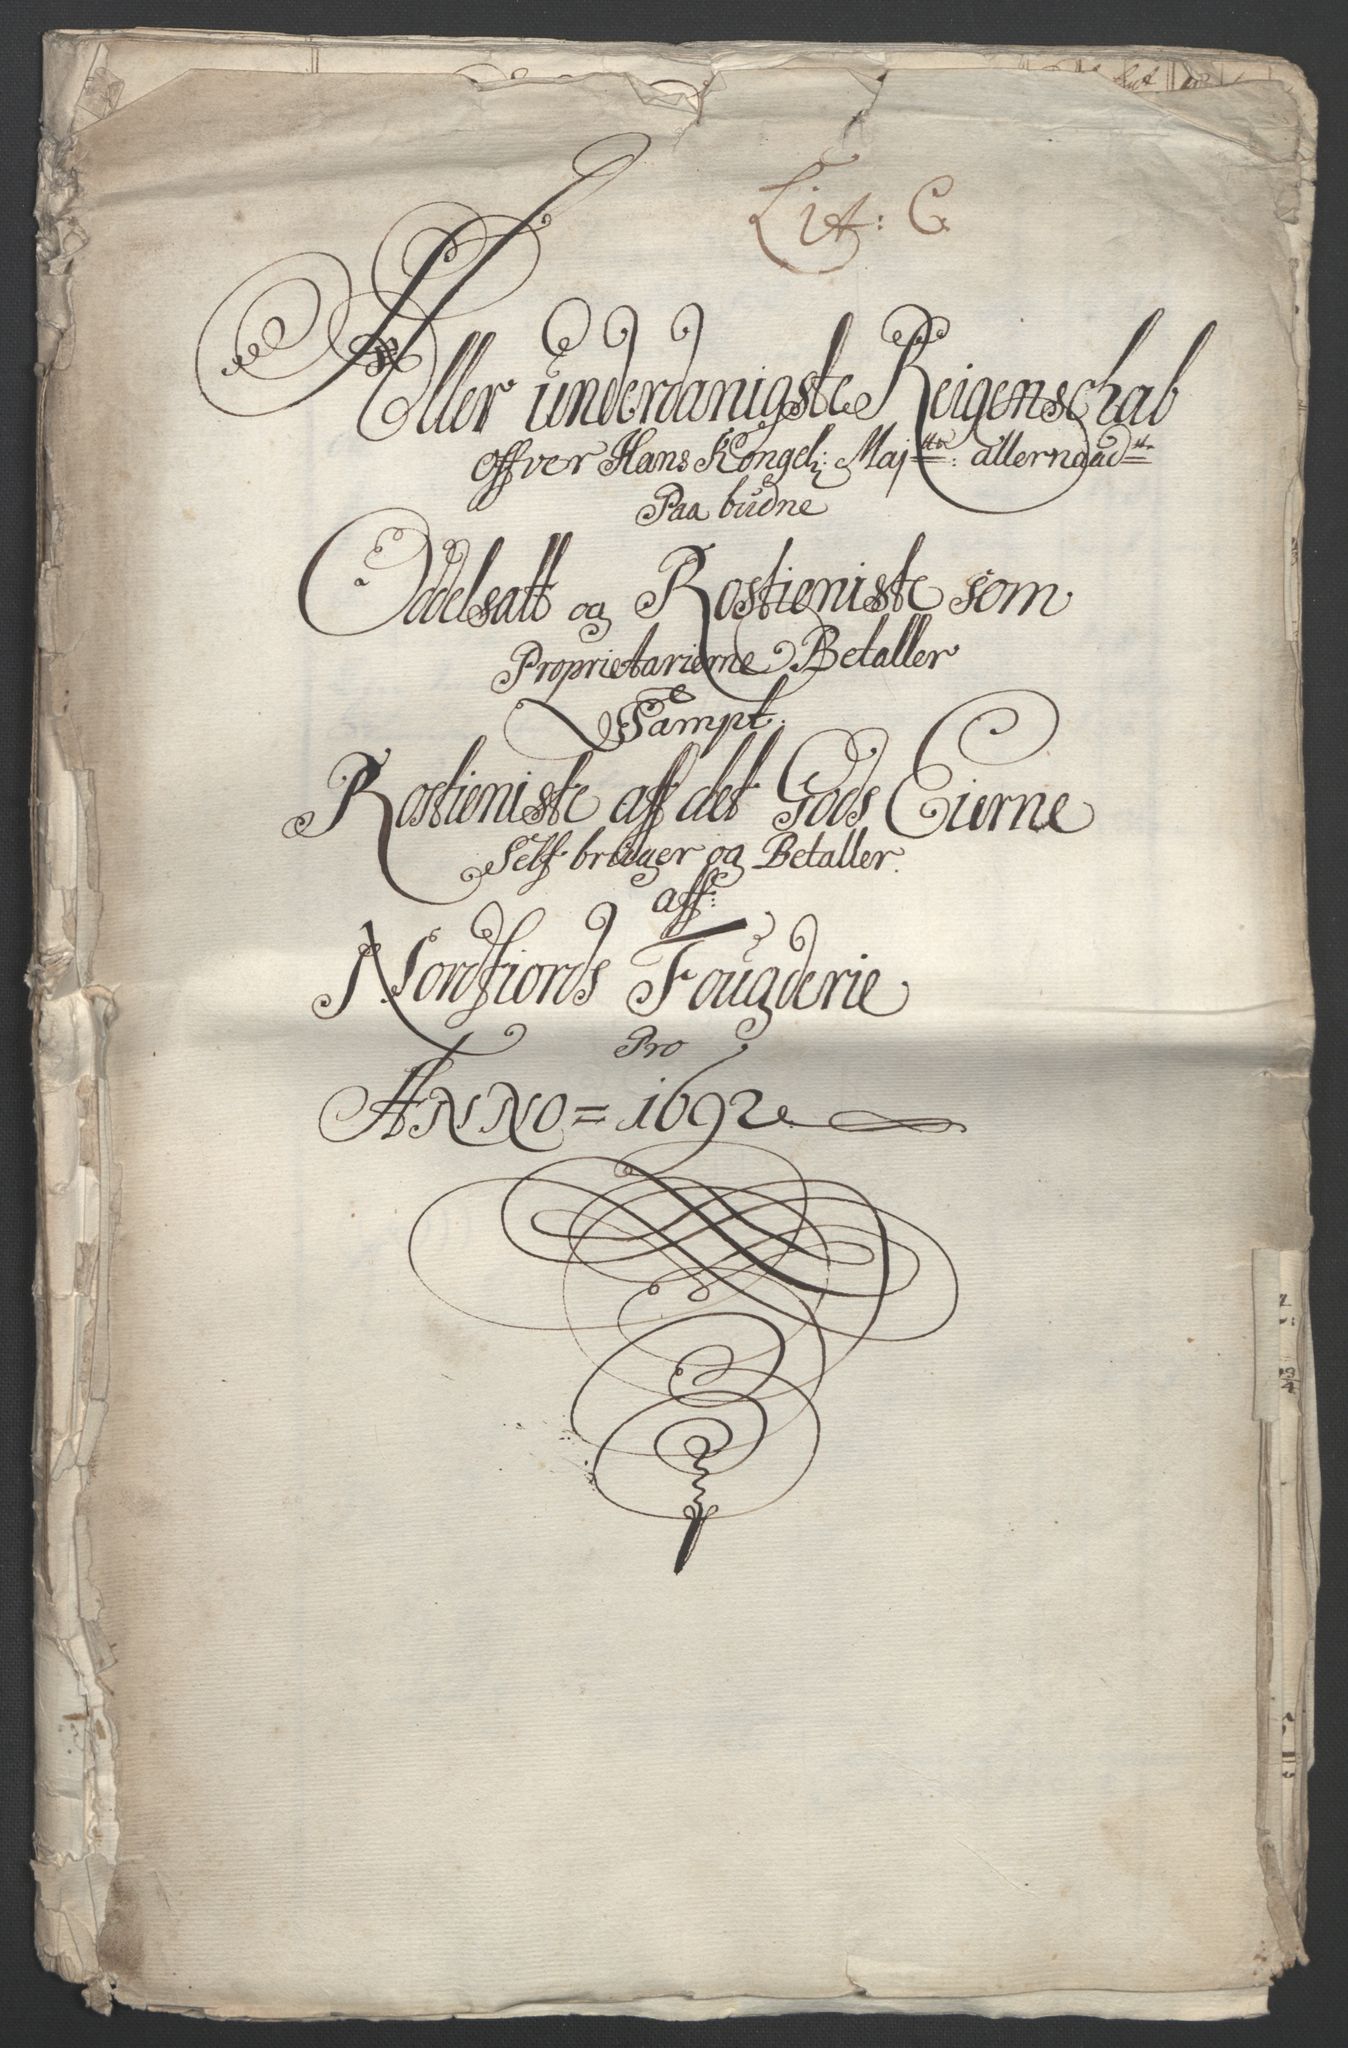 Lit: C
Aller underdanigste Reigenschab
offver Hans Kongel: Maj:tts: allernaad:st
Paa budne
Oddelsatt og Rostieniste som
Proprietarierne Betaller
Sampt.
Rostieniste aff det Gods Eierne
Self brüger og Betaller.
aff:
Nordfiords Fougderie
Pro
ANNO = 1692